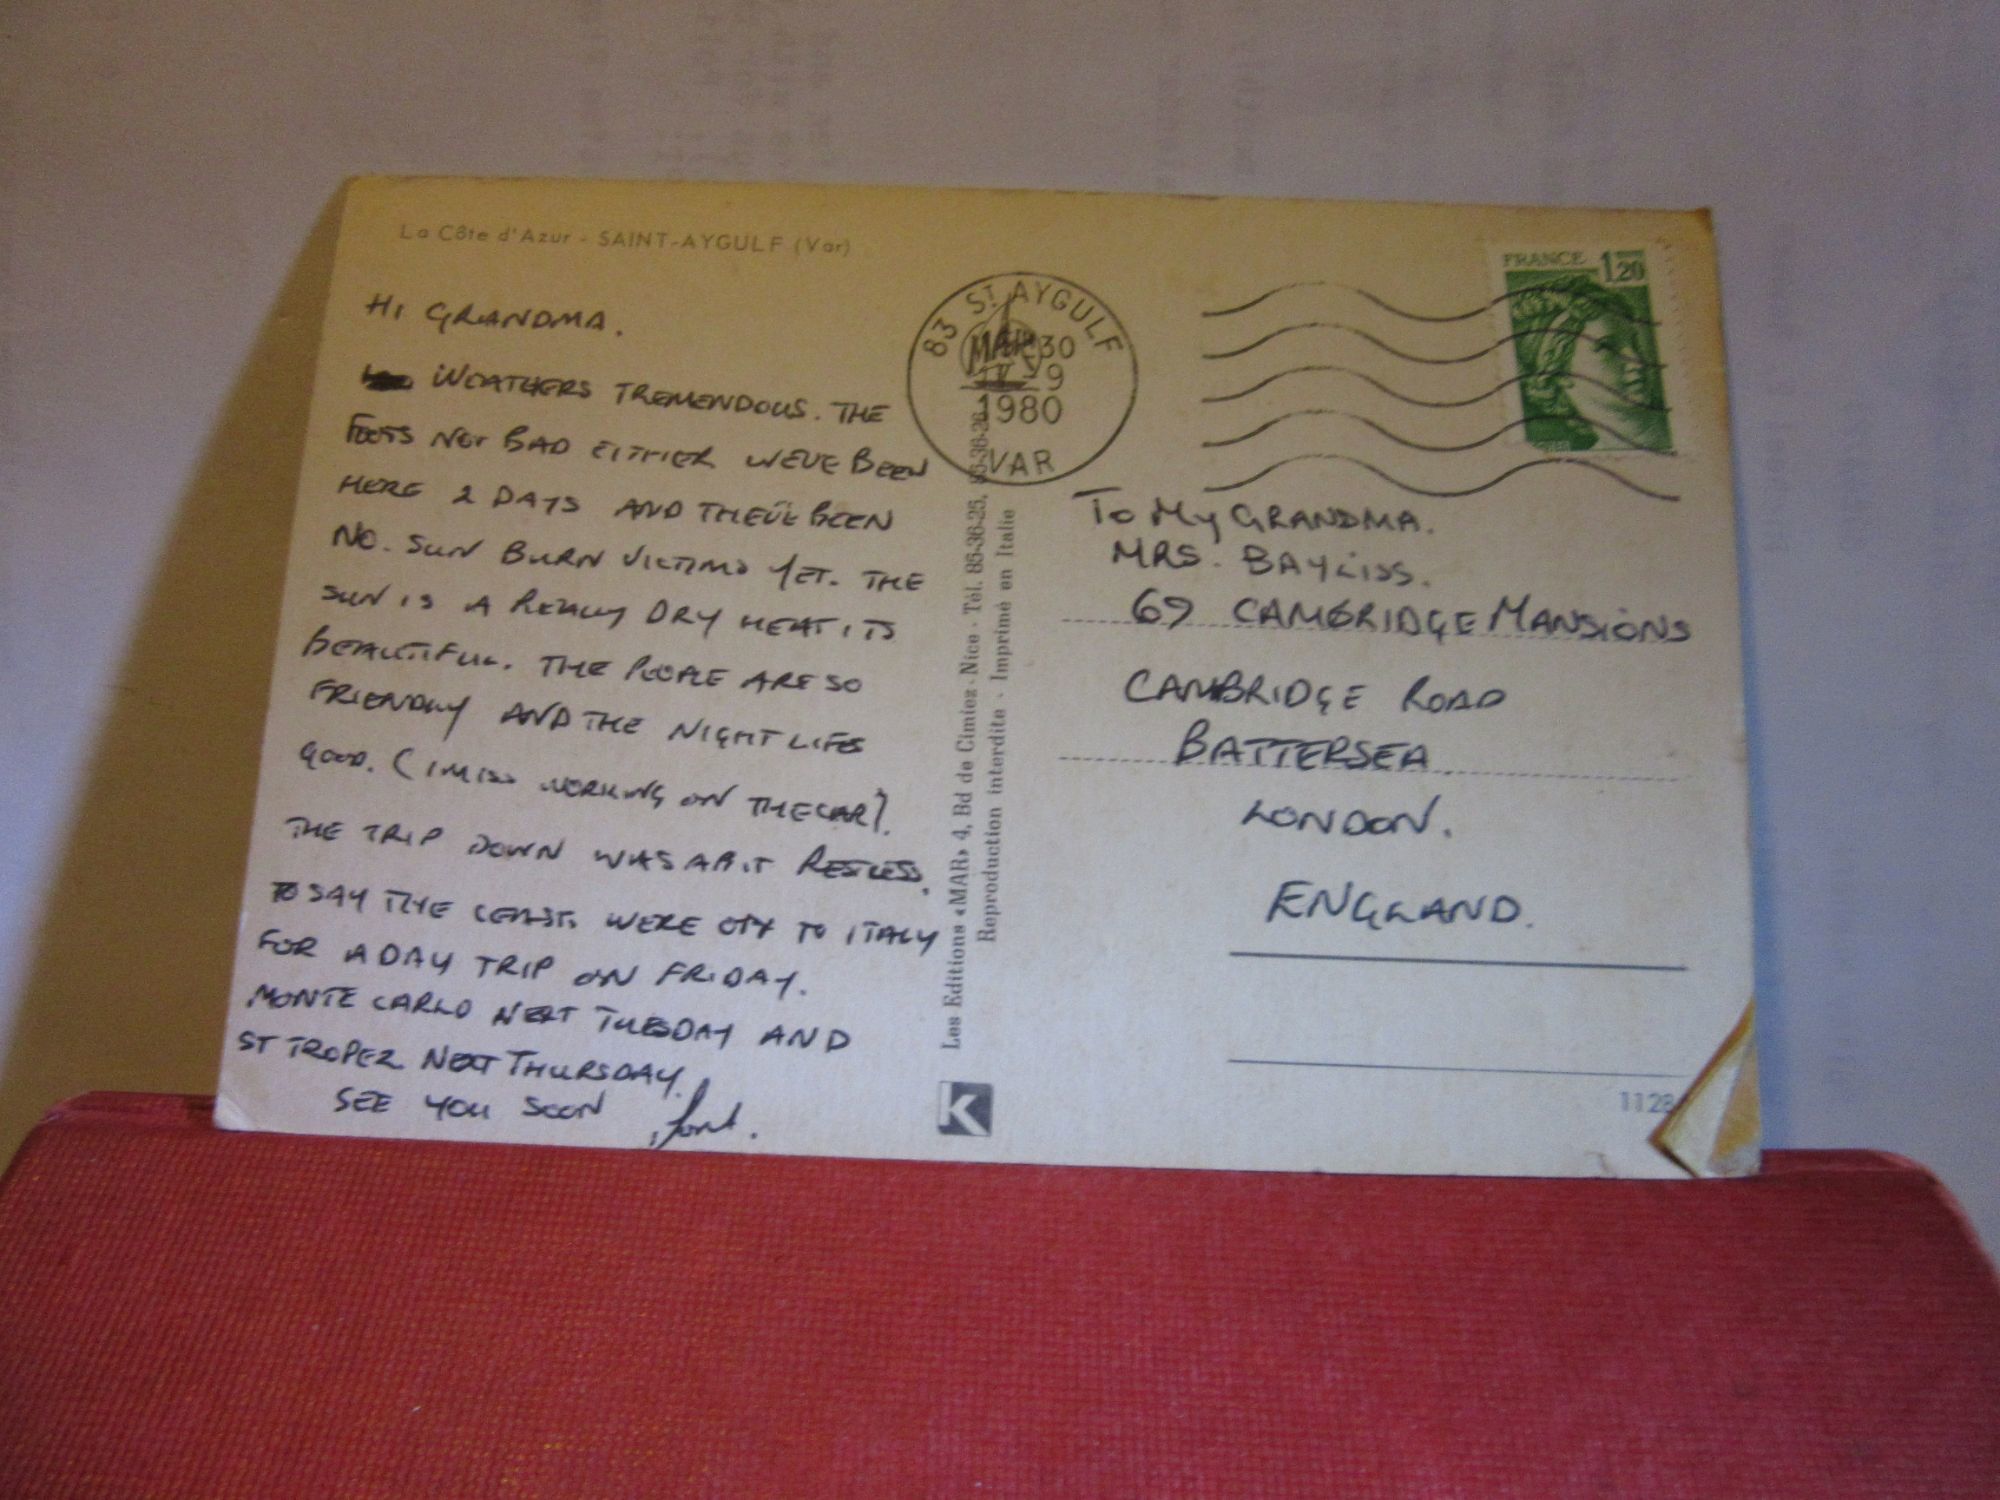 La Côte d'Azur - SAINT-AYGULF (Var)
HI GRANDMA.
WEATHERS TREMENDOUS. THE
NOT BAD EITHER WEVE BEEN
HERE 2 DAYS AND BEEN
NO. SUN BURN VICTIMS YET. THE
SUN IS A REALLY DRY HEAT ITS
BEAUTIFUL. THE PEOPLE ARE SO
FRIENDLY AND THE NIGHT LIFES
GOOD. (I MISS WORKING ON THE CAR).
THE TRIP DOWN WAS A BIT RESTLESS.
TO SAY THE LEAST. WERE OFF TO ITALY
FOR A DAY TRIP ON FRIDAY.
MONTE CARLO NEXT TUESDAY AND
ST TROPEZ NEXT THURSDAY.
SEE YOU SOON
83 ST AYGULF
30
-9
1980
VAR
FRANCE 1,20
Les Editions «MAR» 4, Bd de Cimiez - Nice - Tél. 85-36-25, 85-36-26
Reproduction interdite - Imprimé en Italie
TO MY GRANDMA.
MRS. BAYLISS.
69 CAMBRIDGE MANSIONS
CAMBRIDGE ROAD
BATTERSEA
LONDON.
ENGLAND.
K
1128